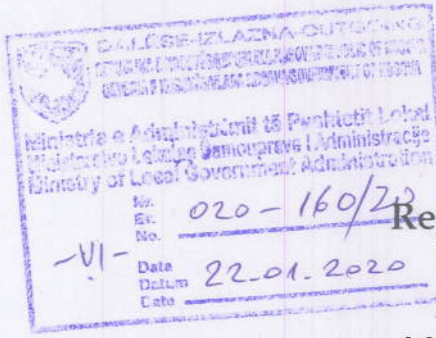 DALËSE-IZLAZNA-OUTGOING
Ministria e Administrimit të Pushtetit Lokal
Ministarstvo Lokalne Samouprave i Administracije
Ministry of Local Government Administration
Nr.
Br.
No.
020-160/20
Re
-VI-
Data
Datum
Date
22-01-2020